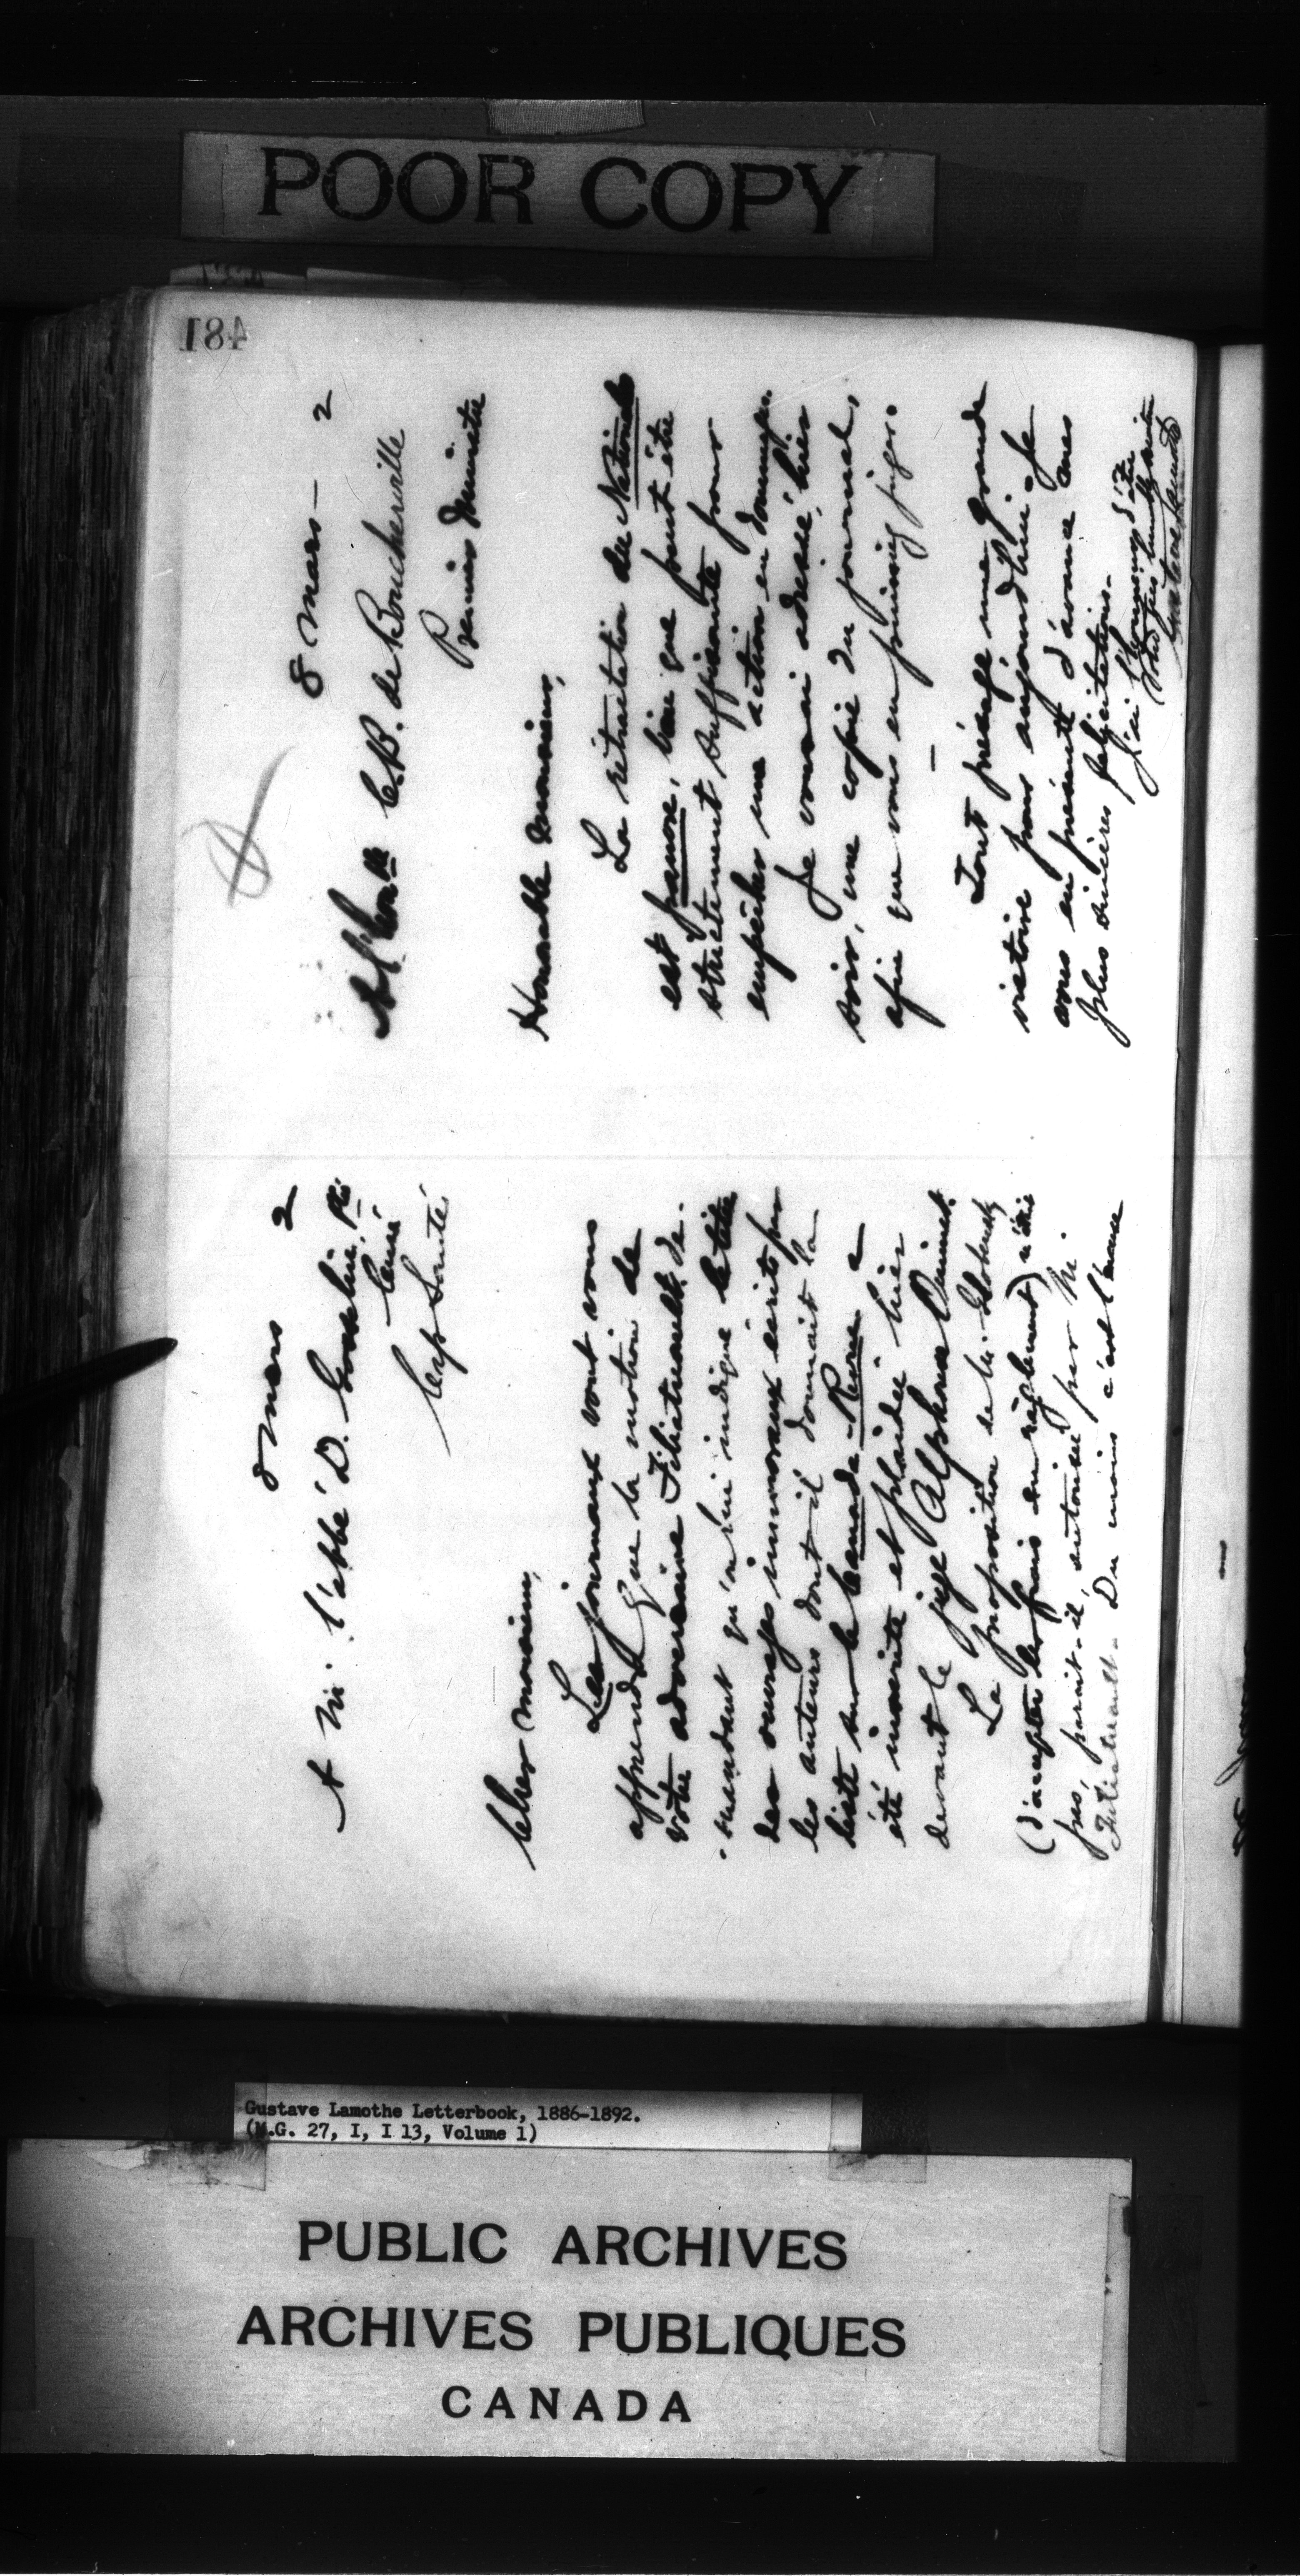 POOR COPY
481
8 mars 2
A M. l'abbé D. Gosselin, Ptre
Curé
Cap Santé
Cher monsieur,
Les journaux vont vous
apprendre que la motion de
votre adversaire Filiatreault de-
mandant qu'on lui indique le titre
des ouvrages immoraux écrits par
les auteurs dont il donnait la
liste sur le Canada-Revue a
été inscrite et plaidée hier
devant le juge Alphonse Ouimet.
La proposition de M. Globensky
(d'accepter les frais en règlement) n'était
pas, paraît-il, autorisée par M.
Filiatreault. Du moins c'est l'avoué
8 mars — 2
A l'Honble C.B. de Boucherville
Premier Ministre
Honorable Monsieur,
La rétractation du National
est fausse, bien que peut être
strictement suffisante pour
empêcher une action en dommages.
Je vous ai adressé, hier
soir, une copie du journal,
afin que vous en puissiez juger.
—
Tout présage une grande
victoire pour aujourd'hui. Je
vous en présente d'avance mes
plus sincères félicitations.
J'ai l'honneur d'être
Votre très humble serviteur
Gustave Lamothe
Gustave Lamothe Letterbook, 1886-1892.
(M.G. 27, I, I 13, Volume 1)
PUBLIC ARCHIVES
ARCHIVES PUBLIQUES
CANADA